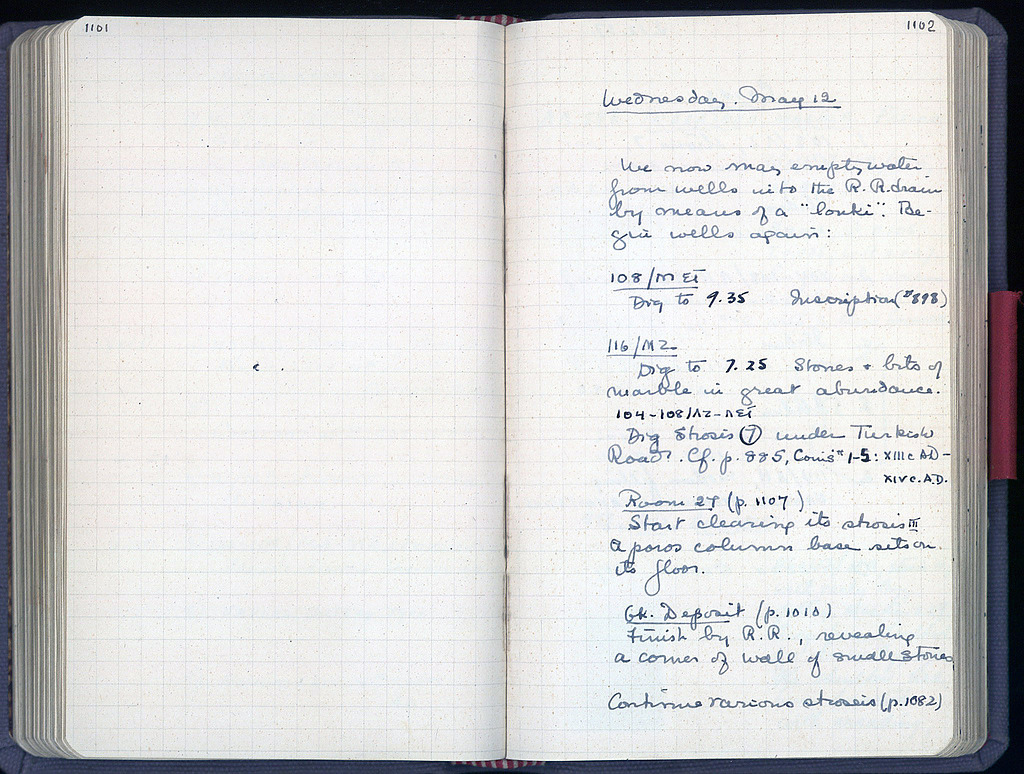 1101
1102
Wednesday. May 12
We now may empty water
from wells into the R. R. drain
by means of a "louki". Be-
gin wells again:
108/ΜΕΓ
Dig to 9.35 Inscription (#898)
116/ΜΖ
Dig to 7.25 Stones + bits of
marble in great abundance.
104-108/ΛΖ-ΛΕΓ
Dig Strosis (7) under Turkish
Road. Cf. p. 885, Coins # 1-5: XIII c AD-
XIV c. A.D.
Room 27 (p. 1107)
Start clearing its strosis III
a poros column base sits on
its floor.
Gk. Deposit (p. 1010)
Finish by R.R., revealing
a corner of wall of small stones
Continue various stroseis (p. 1082)